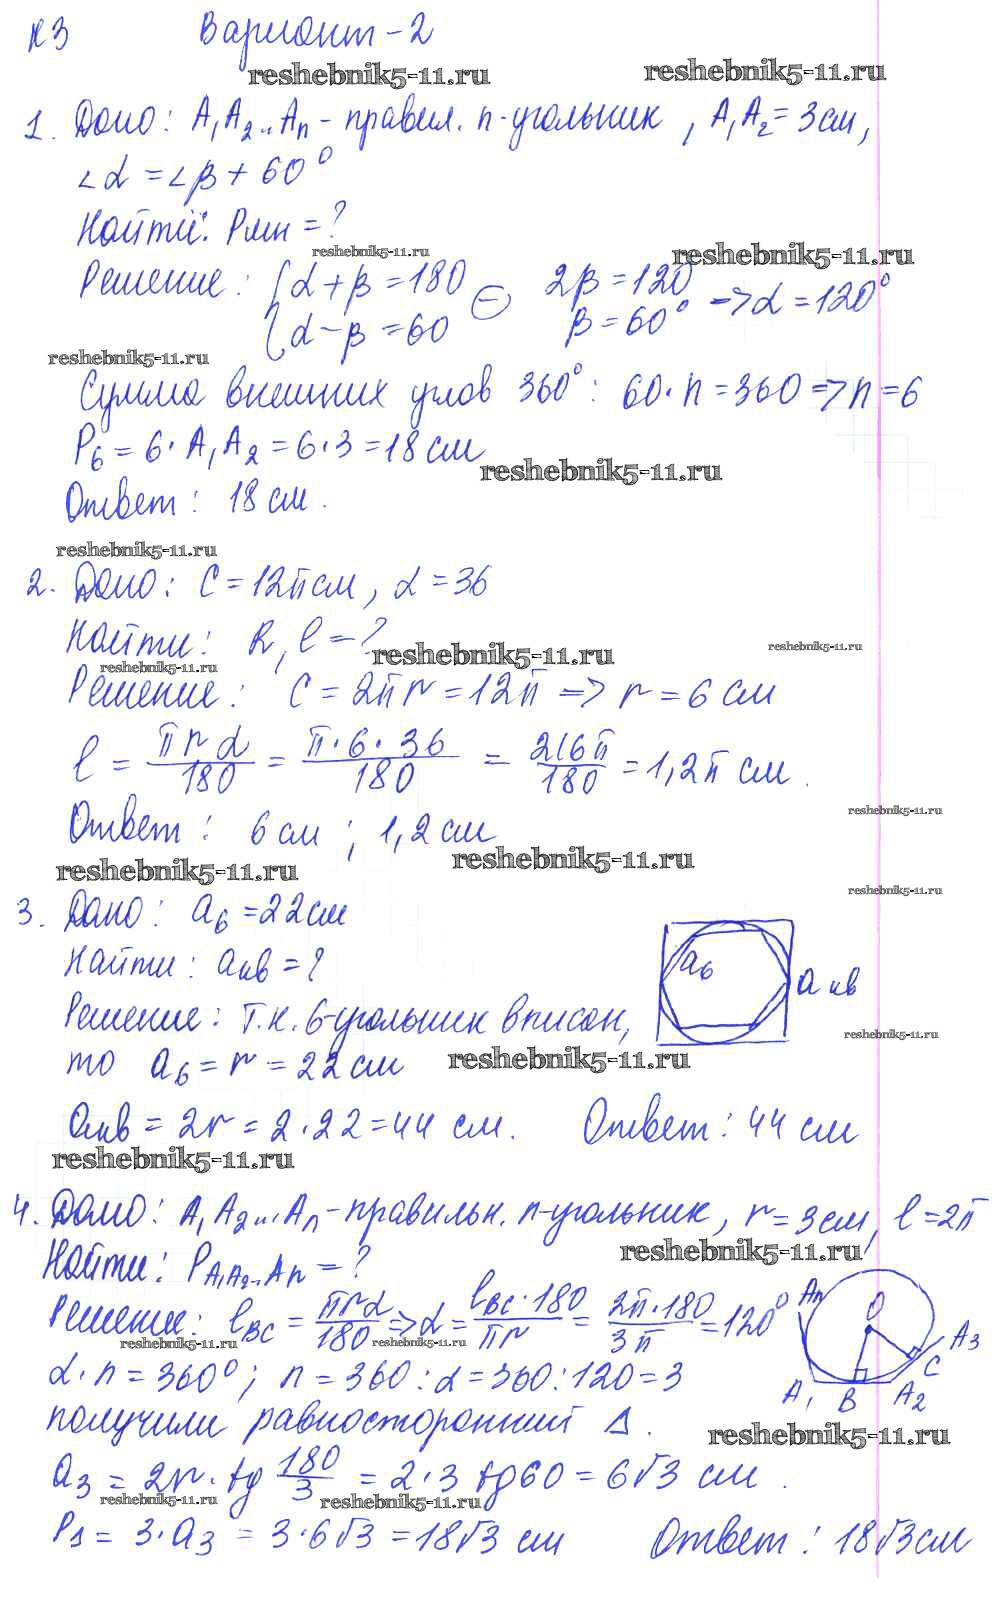 К3 Вариант-2
reshebnik5-11.ru reshebnik5-11.ru
1. Дано: A₁A₂...Aₙ - правил. n-угольник, A₁A₂ = 3 см,
∠α = ∠β + 60°
Найти: Pмн = ?
reshebnik5-11.ru reshebnik5-11.ru
Решение: { α + β = 180 2β = 120
{ α - β = 60 ⊖ β = 60° => α = 120°
reshebnik5-11.ru
Сумма внешних углов 360°: 60·n = 360 => n = 6
P₆ = 6·A₁A₂ = 6·3 = 18 см
reshebnik5-11.ru
Ответ: 18 см.
reshebnik5-11.ru
2. Дано: C = 12π см, α = 36
Найти: R, l = ?
reshebnik5-11.ru reshebnik5-11.ru
reshebnik5-11.ru
Решение: C = 2πr = 12π => r = 6 см
l = πrα/180 = π·6·36/180 = 216π/180 = 1,2π см.
reshebnik5-11.ru
Ответ: 6 см; 1,2 см
reshebnik5-11.ru reshebnik5-11.ru
reshebnik5-11.ru
3. Дано: a₆ = 22 см
Найти: aкв = ?
a₆ aкв
Решение: т.к. 6-угольник вписан,
reshebnik5-11.ru reshebnik5-11.ru
то a₆ = r = 22 см
aкв = 2r = 2·22 = 44 см. Ответ: 44 см
reshebnik5-11.ru
4. Дано: A₁A₂...Aₙ - правильн. n-угольник, r = 3 см, l = 2π
reshebnik5-11.ru
Найти: P A₁A₂...Aₙ = ?
Решение: lBC = πrα/180 => α = lBC·180/πr = 2π·180/3π = 120°
reshebnik5-11.ru reshebnik5-11.ru
Aₙ O A₃ C A₁ B A₂
α·n = 360°; n = 360:α = 360:120 = 3
получили равносторонний Δ.
reshebnik5-11.ru
a₃ = 2r·tg 180/3 = 2·3 tg60 = 6√3 см.
reshebnik5-11.ru reshebnik5-11.ru
P₃ = 3·a₃ = 3·6√3 = 18√3 см Ответ: 18√3 см